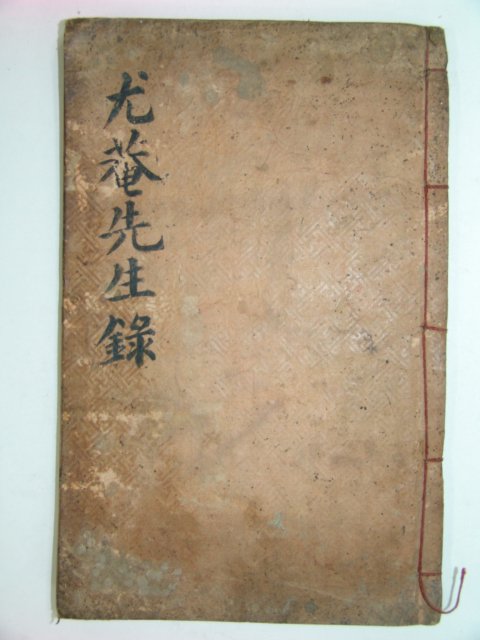 尤菴先生錄